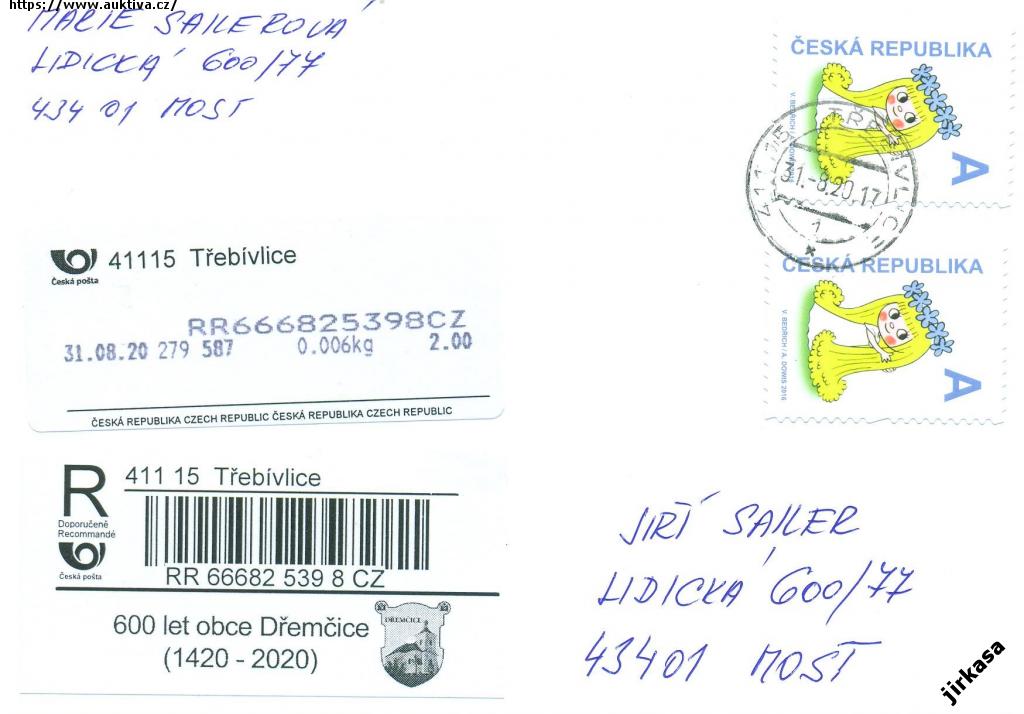 https://www.auktiva.cz/
MARIE SAILEROVÁ
LIDICKÁ 600/77
434 01 MOST
ČESKÁ REPUBLIKA
V. BEDŘICH / A. DOWIS 2016
A
411 15 TŘEBÍVLICE
31.-8.20.17
1
ČESKÁ REPUBLIKA
V. BEDŘICH / A. DOWIS 2016
A
Česká pošta
41115 Třebívlice
RR666825398CZ
31.08.20 279 587 0.006kg 2.00
ČESKÁ REPUBLIKA CZECH REPUBLIC ČESKÁ REPUBLIKA CZECH REPUBLIC
R
Doporučeně
Recommandé
Česká pošta
411 15 Třebívlice
RR 66682 539 8 CZ
600 let obce Dřemčice
(1420 - 2020)
DŘEMČICE
JIŘÍ SAILER
LIDICKÁ 600/77
43401 MOST
jirkasa